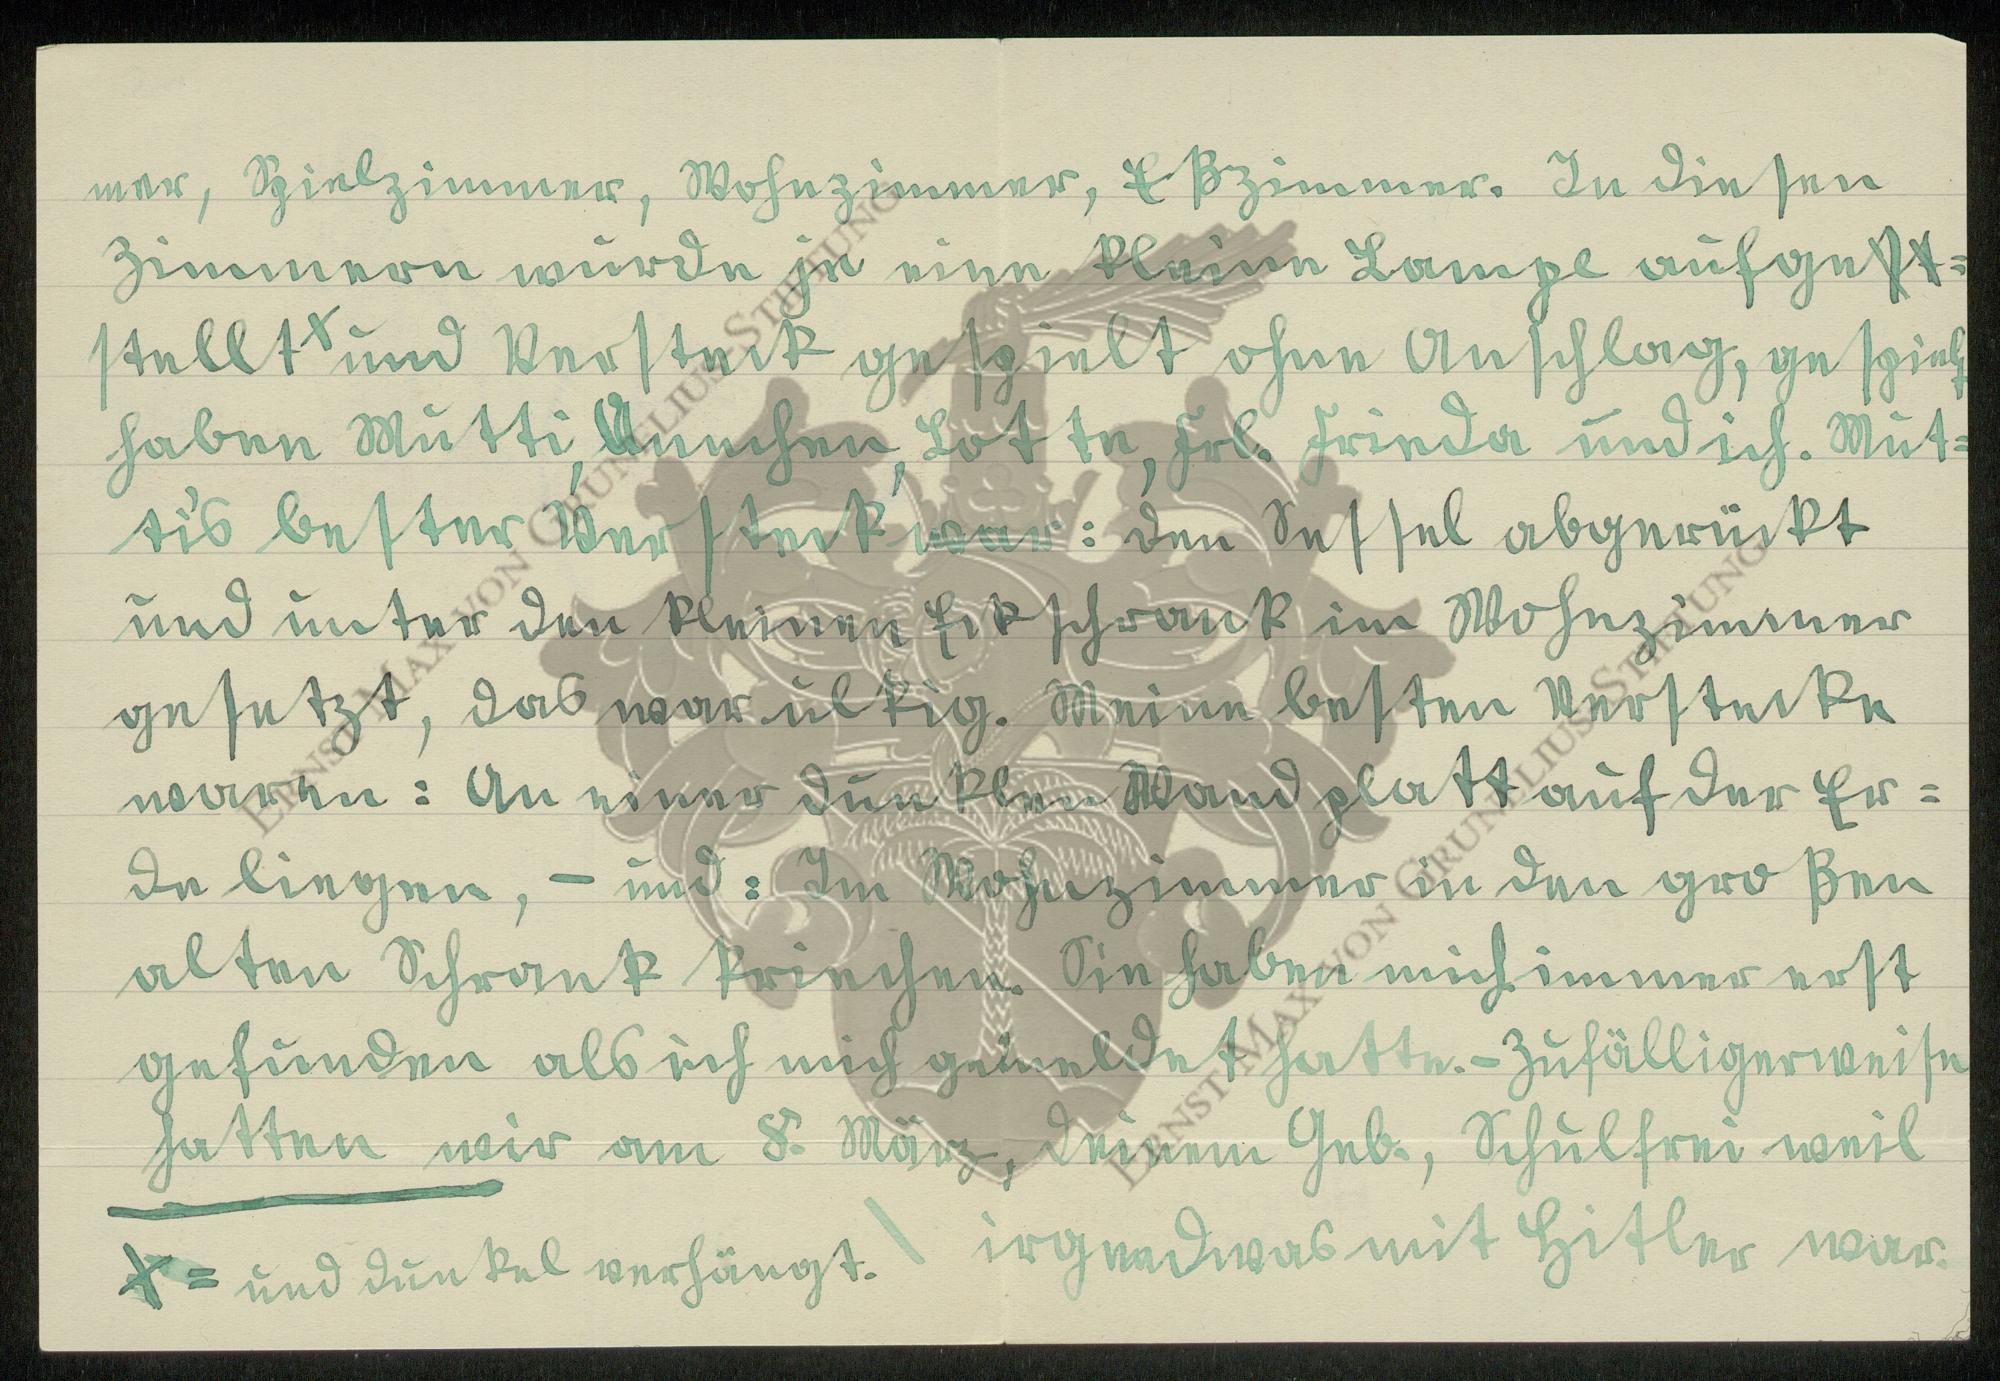 mer, Spielzimmer, Wohnzimmer, Eßzimmer. In diesen
Zimmern wurde je eine kleine Lampe aufge=
stelltx und Versteck gespielt ohne Anschlag, gespielt
haben Mutti, Annchen, Lotte, Frl. Frieda und ich. Mut=
ti's bester Versteck war: den Sessel abgerückt
und unter den kleinen Eckschrank im Wohnzimmer
gesetzt, das war ulkig. Meine besten Verstecke
waren: An einer dunklen Wand platt auf der Er=
de liegen, – und: Im Wohnzimmer in den großen
alten Schrank kriechen. Sie haben mich immer erst
gefunden als ich mich gemeldet hatte. – Zufälligerweise
hatten wir am 8. März, deinem Geb., Schulfrei weil
irgendwas mit Hitler war.
x = und dunkel verhängt.
ERNST MAX VON GRUNELIUS-STIFTUNG
ERNST MAX VON GRUNELIUS-STIFTUNG